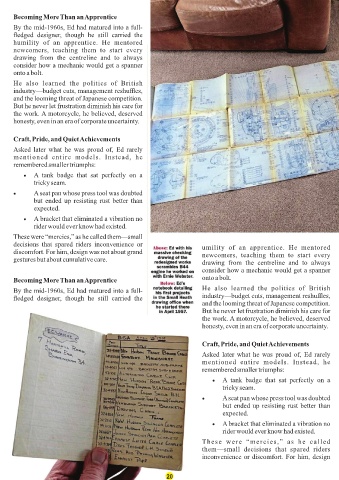 Becoming More Than an Apprentice
By the mid-1960s, Ed had matured into a full-
fledged designer, though he still carried the
humility of an apprentice. He mentored
newcomers, teaching them to start every
drawing from the centreline and to always
consider how a mechanic would get a spanner
onto a bolt.
He also learned the politics of British
industry—budget cuts, management reshuffles,
and the looming threat of Japanese competition.
But he never let frustration diminish his care for
the work. A motorcycle, he believed, deserved
honesty, even in an era of corporate uncertainty.
Craft, Pride, and Quiet Achievements
Asked later what he was proud of, Ed rarely
mentioned entire models. Instead, he
remembered smaller triumphs:
• A tank badge that sat perfectly on a
tricky seam.
• A seat pan whose press tool was doubted
but ended up resisting rust better than
expected.
• A bracket that eliminated a vibration no
rider would ever know had existed.
These were “mercies,” as he called them—small
decisions that spared riders inconvenience or
discomfort. For him, design was not about grand
gestures but about cumulative care.
Becoming More Than an Apprentice
By the mid-1960s, Ed had matured into a full-
fledged designer, though he still carried the
Above: Ed with his
massive sheeting
drawing of the
redesigned works
scrambles B44
engine he worked on
with Ernie Webster.
Below: Ed's
notebook detailing
his first projects
in the Small Heath
drawing office when
he started there
in April 1957.
umility of an apprentice. He mentored
newcomers, teaching them to start every
drawing from the centreline and to always
consider how a mechanic would get a spanner
onto a bolt.
He also learned the politics of British
industry—budget cuts, management reshuffles,
and the looming threat of Japanese competition.
But he never let frustration diminish his care for
the work. A motorcycle, he believed, deserved
honesty, even in an era of corporate uncertainty.
Craft, Pride, and Quiet Achievements
Asked later what he was proud of, Ed rarely
mentioned entire models. Instead, he
remembered smaller triumphs:
• A tank badge that sat perfectly on a
tricky seam.
• A seat pan whose press tool was doubted
but ended up resisting rust better than
expected.
• A bracket that eliminated a vibration no
rider would ever know had existed.
These were “mercies,” as he called
them—small decisions that spared riders
inconvenience or discomfort. For him, design
20